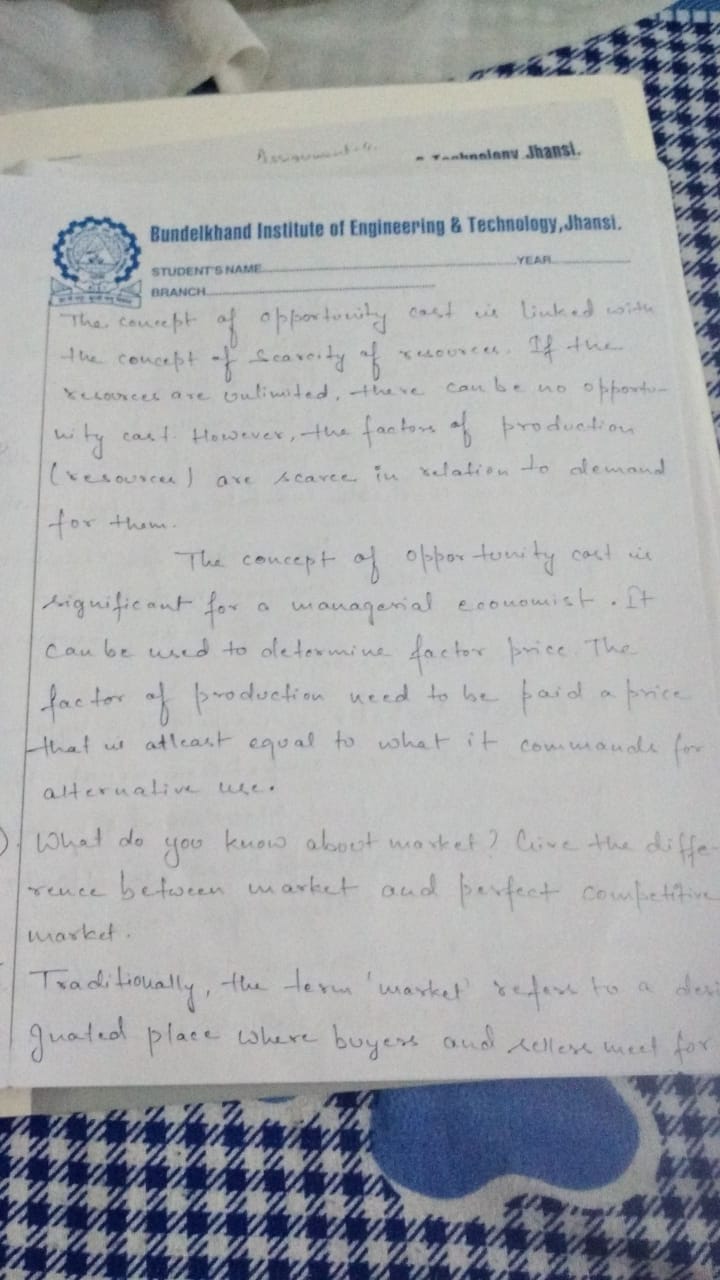 Assignment-4.
Technology Jhansi.
Bundelkhand Institute of Engineering & Technology, Jhansi.
STUDENT'S NAME YEAR
BRANCH
The concept of opportunity cost is linked with
the concept of scarcity of resources. If the
resources are unlimited, there can be no opportu-
nity cost. However, the factors of production
(resources) are scarce in relation to demand
for them.
The concept of opportunity cost is
significant for a managerial economist. It
can be used to determine factor price. The
factor of production need to be paid a price
that is atleast equal to what it commands for
alternative use.
) What do you know about market? Give the diffe-
rence between market and perfect competitive
market.
Traditionally, the term 'market' refers to a desi
gnated place where buyers and sellers meet for